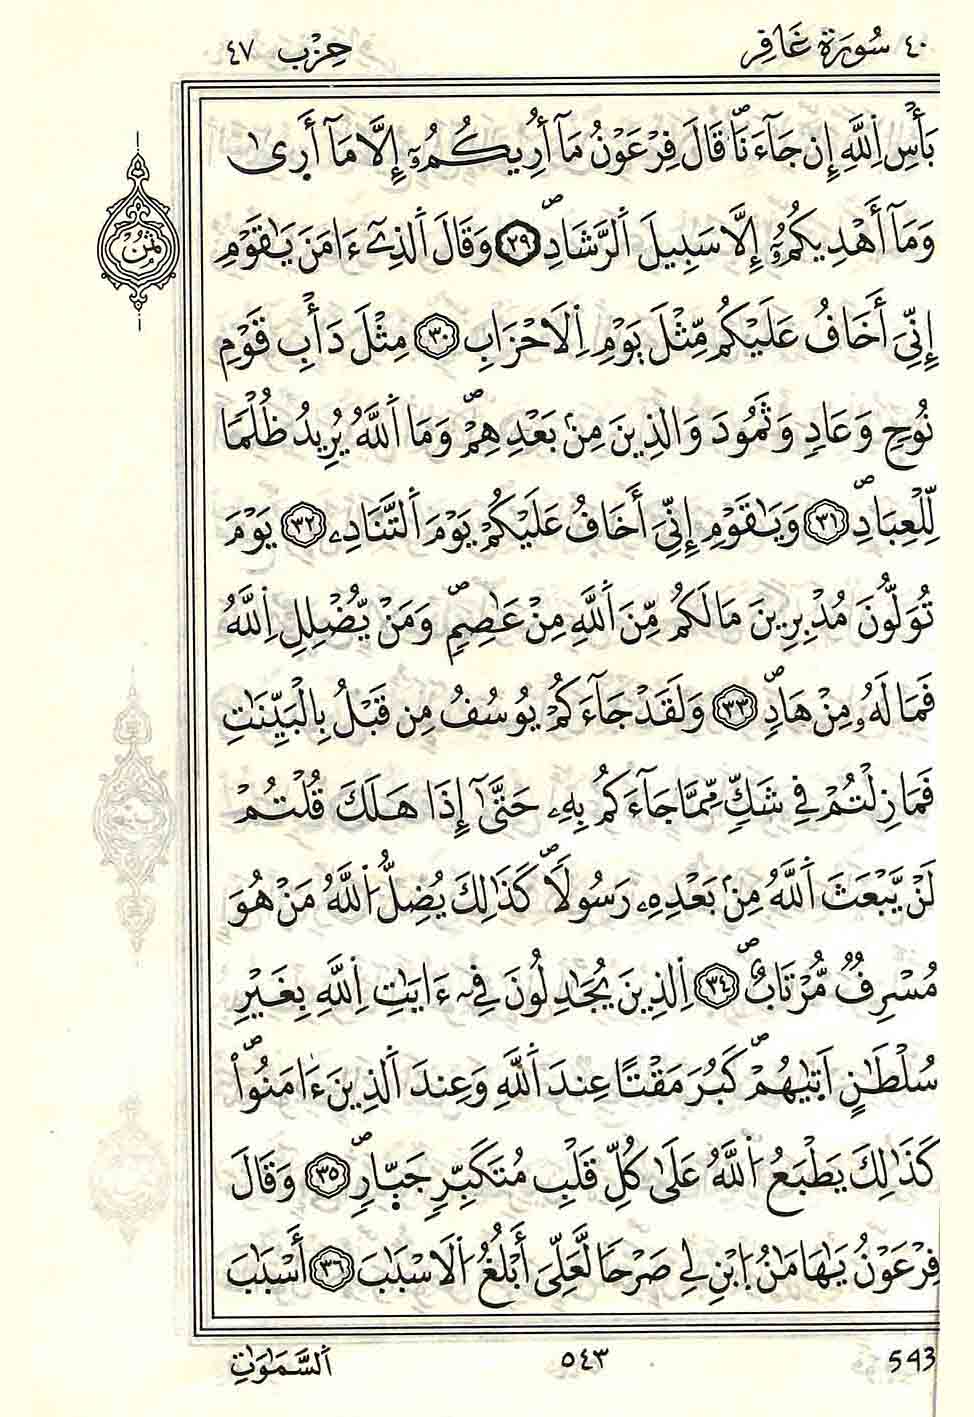 ٤٠ سُورَةُ غَافِرٍ حِزْب ٤٧
بَأْسِ اِ۬للَّهِ إِن جَآءَنَاۖ قَالَ فِرْعَوْنُ مَآ أُرِيكُمُۥٓ إِلَّا مَآ أَر۪ىٰ
وَمَآ أَهْدِيكُمُۥٓ إِلَّا سَبِيلَ اَ۬لرَّشَادِۖ ٢٩ وَقَالَ اَ۬لذِےٓ ءَامَنَ يَٰقَوْمِ
إِنِّيَ أَخَافُ عَلَيْكُم مِّثْلَ يَوْمِ اِ۬لَاحْزَابِ ٣٠ مِثْلَ دَأْبِ قَوْمِ
نُوحٖ وَعَادٖ وَثَمُودَ وَالذِينَ مِنۢ بَعْدِهِمْۖ وَمَا اَ۬للَّهُ يُرِيدُ ظُلْماٗ
لِّلْعِبَادِۖ ٣١ وَيَٰقَوْمِ إِنِّيَ أَخَافُ عَلَيْكُمْ يَوْمَ اَ۬لتَّنَادِۦ ٣٢ يَوْمَ
تُوَلُّونَ مُدْبِرِينَ مَا لَكُم مِّنَ اَ۬للَّهِ مِنْ عَٰصِمٖۖ وَمَنْ يُّضْلِلِ اِ۬للَّهُ
فَمَا لَهُۥ مِنْ هَادٖۖ ٣٣ وَلَقَدْ جَآءَكُمْ يُوسُفُ مِن قَبْلُ بِالْبَيِّنَٰتِ
فَمَا زِلْتُمْ فِے شَكّٖ مِّمَّا جَآءَكُم بِهِۦ حَتَّىٰٓ إِذَا هَلَكَ قُلْتُمْ
لَنْ يَّبْعَثَ اَ۬للَّهُ مِنۢ بَعْدِهِۦ رَسُولاٗۖ كَذَٰلِكَ يُضِلُّ اُ۬للَّهُ مَنْ هُوَ
مُسْرِفٞ مُّرْتَابٌۖ ٣٤ اِ۬لذِينَ يُجَٰدِلُونَ فِےٓ ءَايَٰتِ اِ۬للَّهِ بِغَيْرِ
سُلْطَٰنٍ اَت۪يٰهُمْۖ كَبُرَ مَقْتاً عِندَ اَ۬للَّهِ وَعِندَ اَ۬لذِينَ ءَامَنُواْۖ
كَذَٰلِكَ يَطْبَعُ اُ۬للَّهُ عَلَىٰ كُلِّ قَلْبِ مُتَكَبِّرٖ جَبّ۪ارٖۖ ٣٥ وَقَالَ
فِرْعَوْنُ يَٰهَٰمَٰنُ اُ۪بْنِ لِے صَرْحاٗ لَّعَلِّيَ أَبْلُغُ اُ۬لَاسْبَٰبَ ٣٦ أَسْبَٰبَ
ثمن
543 ٥٤٣ اَ۬لسَّمَٰوَٰتِ